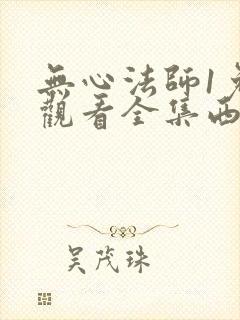 無心法師1
觀看全集西
吴茂珠